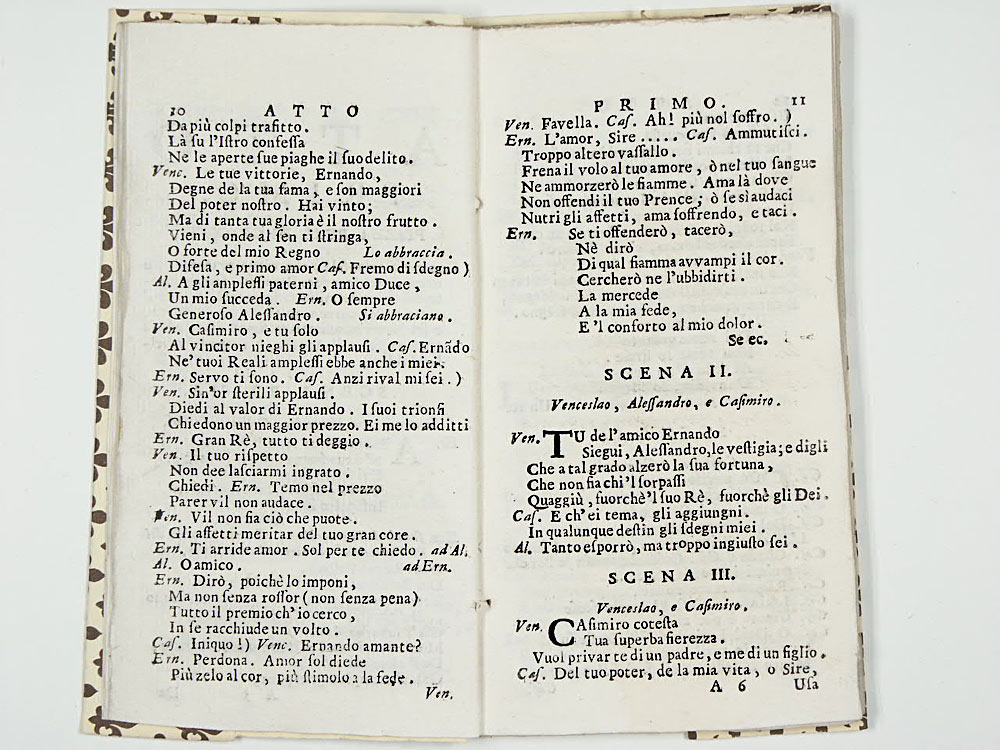 10 ATTO
Da più colpi trafitto.
Là ſu l'Iſtro confeſſa
Ne le aperte ſue piaghe il ſuo delito.
Venc. Le tue vittorie, Ernando,
Degne de la tua fama, e ſon maggiori
Del poter noſtro. Hai vinto;
Ma di tanta tua gloria è il noſtro frutto.
Vieni, onde al ſen ti ſtringa,
O forte del mio Regno Lo abbraccia.
Difeſa, e primo amor Caſ. Fremo di ſdegno)
Al. A gli ampleſſi paterni, amico Duce,
Un mio ſucceda. Ern. O ſempre
Generoſo Aleſſandro. Si abbraciano.
Ven. Caſimiro, e tu ſolo
Al vincitor nieghi gli applauſi. Caſ. Ernãdo
Ne' tuoi Reali ampleſſi ebbe anche i miei.
Ern. Servo ti ſono. Caſ. Anzi rival mi ſei.)
Ven. Sin'or ſterili applauſi.
Diedi al valor di Ernando. I ſuoi trionfi
Chiedono un maggior prezzo. Ei me lo additti
Ern. Gran Rè, tutto ti deggio.
Ven. Il tuo riſpetto
Non dee laſciarmi ingrato.
Chiedi. Ern. Temo nel prezzo
Parer vil non audace.
Ven. Vil non fia ciò che puote.
Gli affetti meritar del tuo gran core.
Ern. Ti arride amor. Sol per te chiedo. ad Al.
Al. O amico. ad Ern.
Ern. Dirò, poichè lo imponi,
Ma non ſenza roſſor (non ſenza pena)
Tutto il premio ch'io cerco,
In ſe racchiude un volto.
Caſ. Iniquo!) Venc. Ernando amante?
Ern. Perdona. Amor ſol diede
Più zelo al cor, più ſtimolo a la fede.
Ven.
PRIMO. 11
Ven. Favella. Caſ. Ah! più nol ſoffro.)
Ern. L'amor, Sire ..... Caſ. Ammutiſci.
Troppo altero vaſſallo.
Frena il volo al tuo amore, ò nel tuo ſangue
Ne ammorzerò le fiamme. Ama là dove
Non offendi il tuo Prence; ò ſe sì audaci
Nutri gli affetti, ama ſoffrendo, e taci.
Ern. Se ti offenderò, tacerò,
Nè dirò
Di qual fiamma avvampi il cor.
Cercherò ne l'ubbidirti.
La mercede
A la mia fede,
E 'l conforto al mio dolor.
Se ec.
SCENA II.
Venceslao, Aleſſandro, e Caſimiro.
Ven. TU de l'amico Ernando
Siegui, Aleſſandro, le veſtigia; e digli
Che a tal grado alzerò la ſua fortuna,
Che non fia chi'l ſorpaſſi
Quaggiù, fuorchè'l ſuo Rè, fuorchè gli Dei.
Caſ. E ch'ei tema, gli aggiungni.
In qualunque deſtin gli ſdegni miei.
Al. Tanto eſporrò, ma troppo ingiuſto ſei.
SCENA III.
Venceslao, e Caſimiro.
Ven. CAſimiro coteſta
Tua ſuperba fierezza.
Vuol privar te di un padre, e me di un figlio.
Caſ. Del tuo poter, de la mia vita, o Sire,
A 6 Uſa